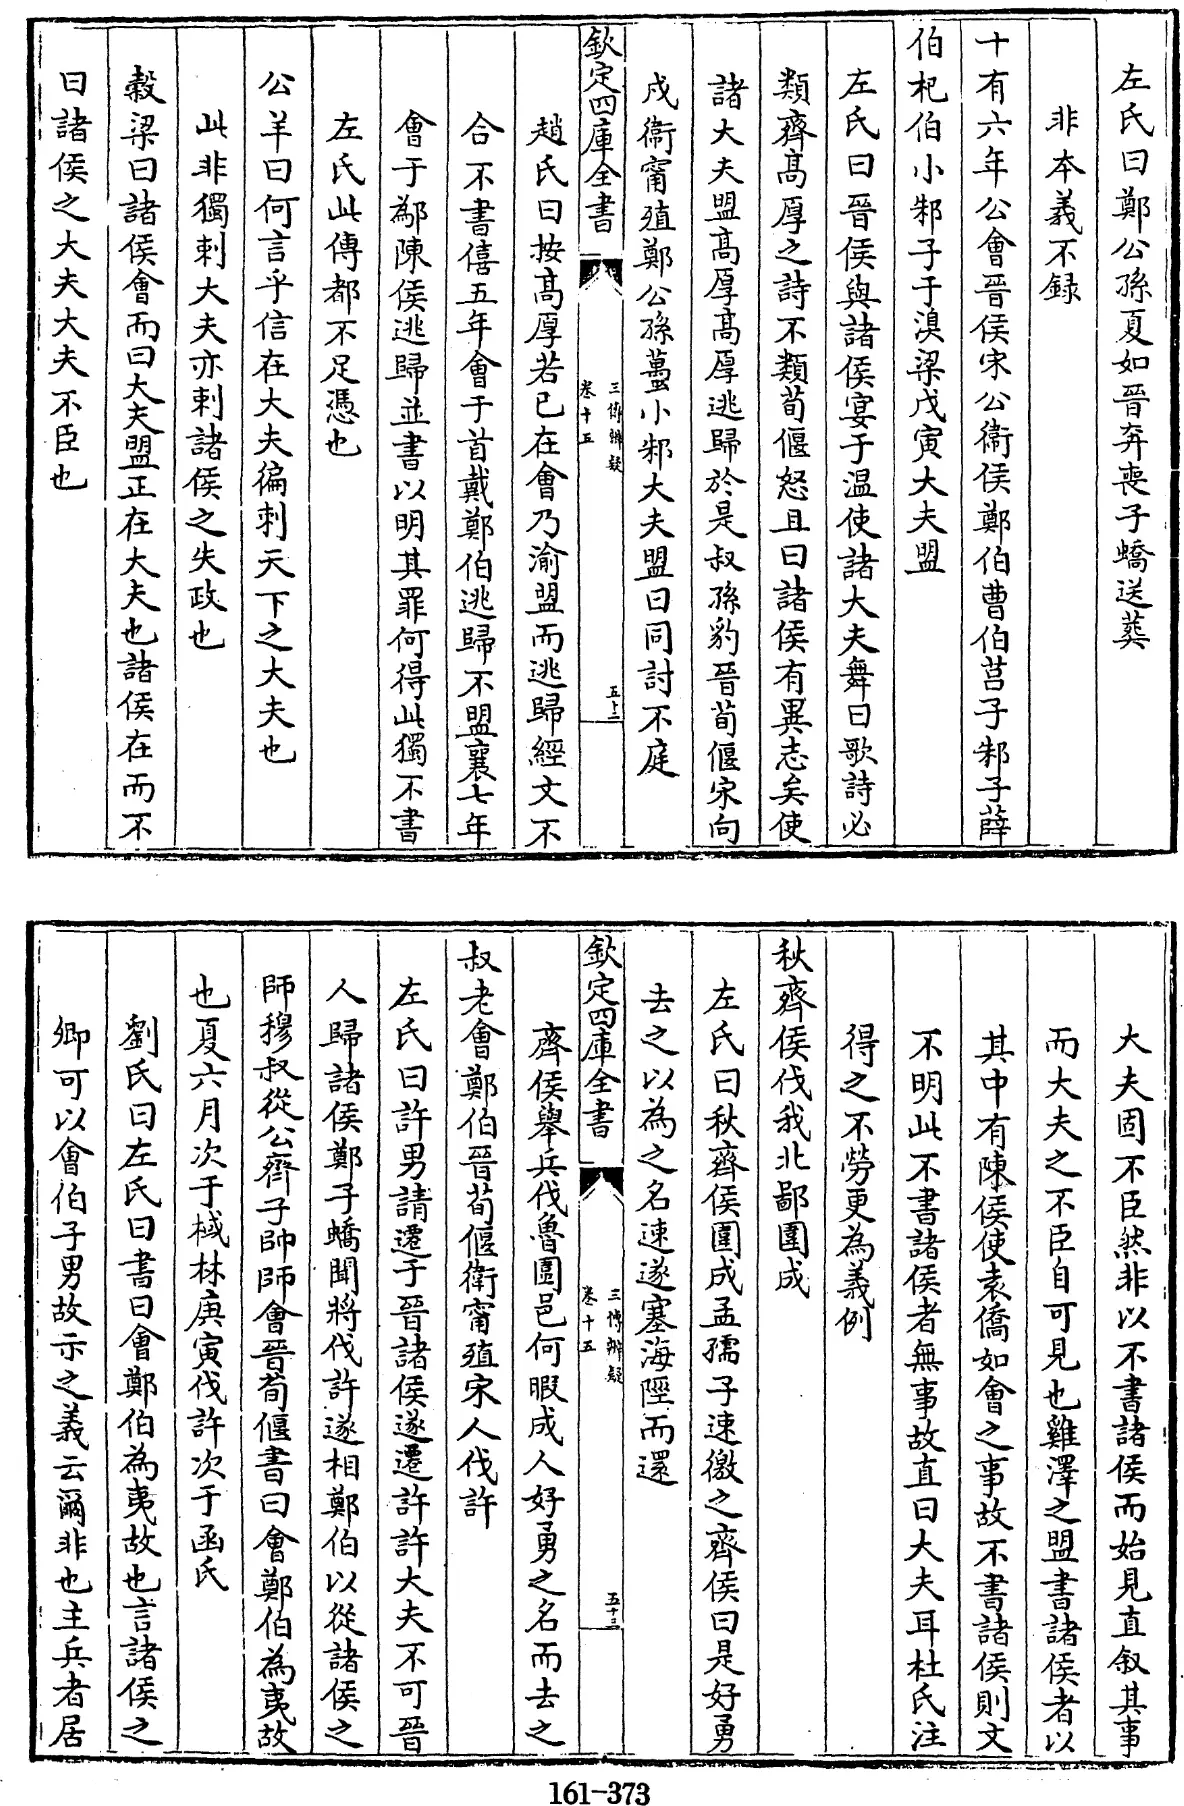 左氏曰鄭公孫夏如晉奔喪子蟜送葬
非本義不録
十有六年公會晉侯宋公衞侯鄭伯曹伯莒子邾子薛
伯杞伯小邾子于湨梁戊寅大夫盟
左氏曰晉侯與諸侯宴于温使諸大夫舞曰歌詩必
類齊髙厚之詩不類荀偃怒且曰諸侯有異志矣使
諸大夫盟髙厚髙厚逃歸於是叔孫豹晉荀偃宋向
戍衞甯殖鄭公孫蠆小邾大夫盟曰同討不庭
欽定四庫全書
三傳辨疑
卷十五
五十二
趙氏曰按髙厚若已在會乃渝盟而逃歸經文不
合不書僖五年會于首戴鄭伯逃歸不盟襄七年
會于鄬陳侯逃歸並書以明其罪何得此獨不書
左氏此傳都不足憑也
公羊曰何言乎信在大夫徧刺天下之大夫也
此非獨刺大夫亦刺諸侯之失政也
穀梁曰諸侯會而曰大夫盟正在大夫也諸侯在而不
曰諸侯之大夫大夫不臣也
大夫固不臣然非以不書諸侯而始見直叙其事
而大夫之不臣自可見也雞澤之盟書諸侯者以
其中有陳侯使袁僑如會之事故不書諸侯則文
不明此不書諸侯者無事故直曰大夫耳杜氏注
得之不勞更為義例
秋齊侯伐我北鄙圍成
左氏曰秋齊侯圍成孟孺子速徼之齊侯曰是好勇
去之以為之名速遂塞海陘而還
欽定四庫全書
三傳辨疑
卷十五
五十三
齊侯舉兵伐魯圍邑何暇成人好勇之名而去之
叔老會鄭伯晉荀偃衞甯殖宋人伐許
左氏曰許男請遷于晉諸侯遂遷許許大夫不可晉
人歸諸侯鄭子蟜聞將伐許遂相鄭伯以從諸侯之
師穆叔從公齊子帥師會晉荀偃書曰會鄭伯為夷故
也夏六月次于棫林庚寅伐許次于函氏
劉氏曰左氏曰書曰會鄭伯為夷故也言諸侯之
卿可以會伯子男故示之義云爾非也主兵者居
161-373